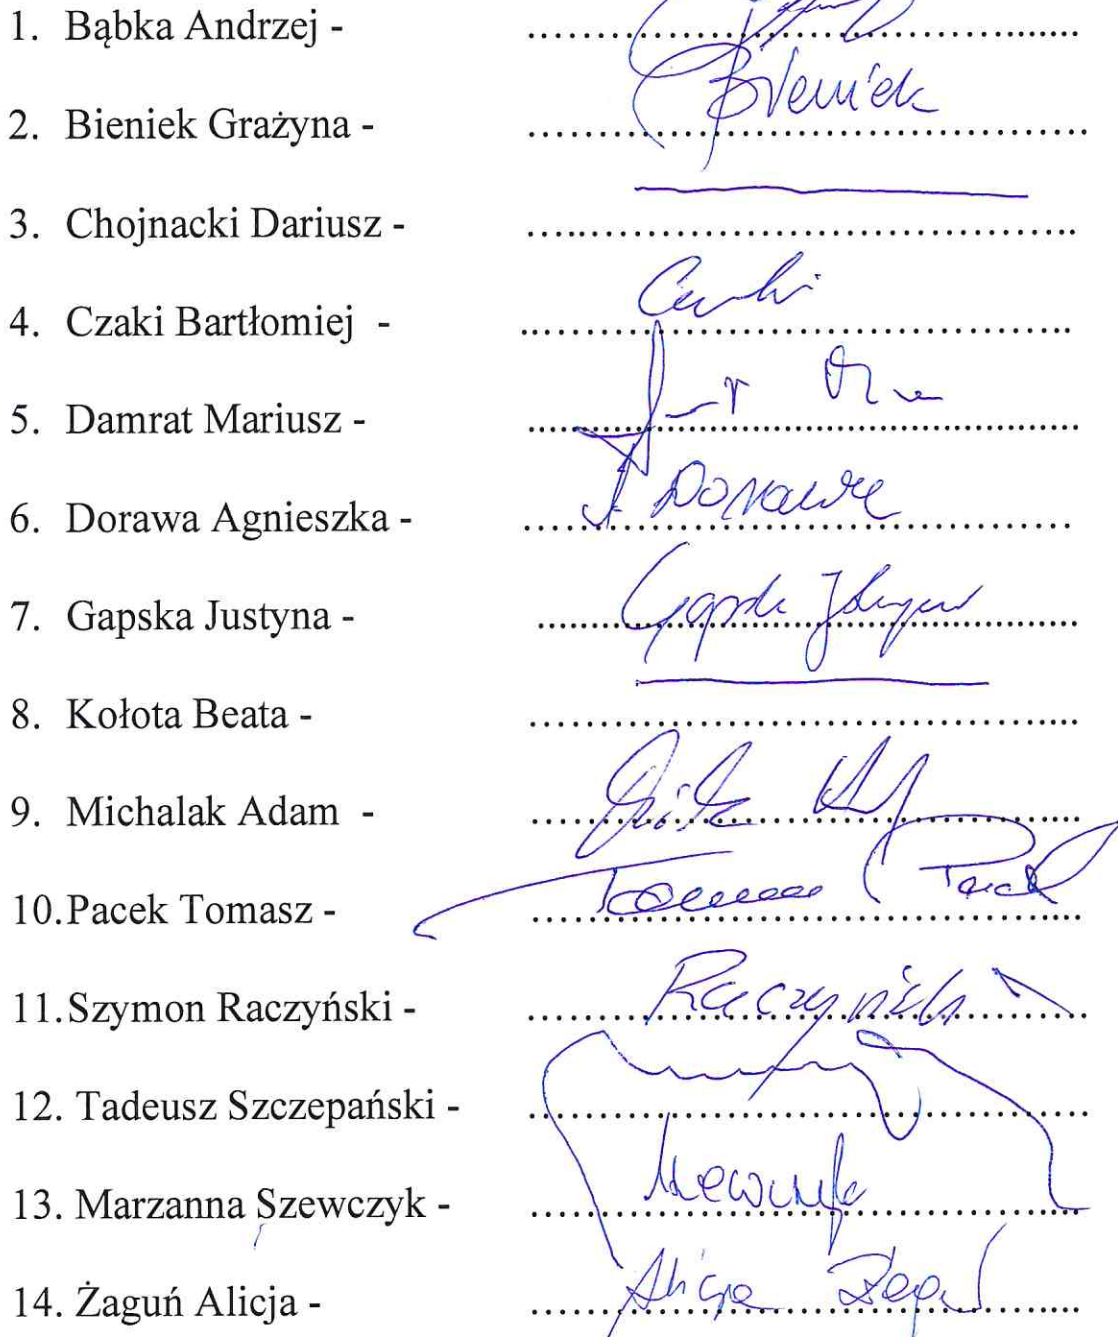 1. Bąbka Andrzej - ..........
2. Bieniek Grażyna - .......... Bieniek
3. Chojnacki Dariusz - ..........
4. Czaki Bartłomiej - ..........
5. Damrat Mariusz - ..........
6. Dorawa Agnieszka - .......... A Dorawa
7. Gapska Justyna - .......... Gapska Justyna
8. Kołota Beata - ..........
9. Michalak Adam - ..........
10.Pacek Tomasz - .......... Tomasz Pacek
11.Szymon Raczyński - .......... Raczyński
12. Tadeusz Szczepański - ..........
13. Marzanna Szewczyk - .......... Szewczyk
14. Żaguń Alicja - .......... Alicja Żaguń